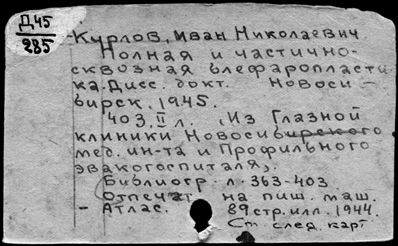 Д45
285
Курлов, Иван Николаевич
Полная и частично-
сквозная блефаропласти
ка. Дисс. докт. Новоси-
бирск, 1945.
403, II л. (Из Глазной
клиники Новосибирского
мед. ин-та и Профильного
эвакогоспиталя).
Библиогр. л. 363-403
Отпечат. на пиш. маш.
- Атлас. 89 стр. илл. 1944.
См. след. карт